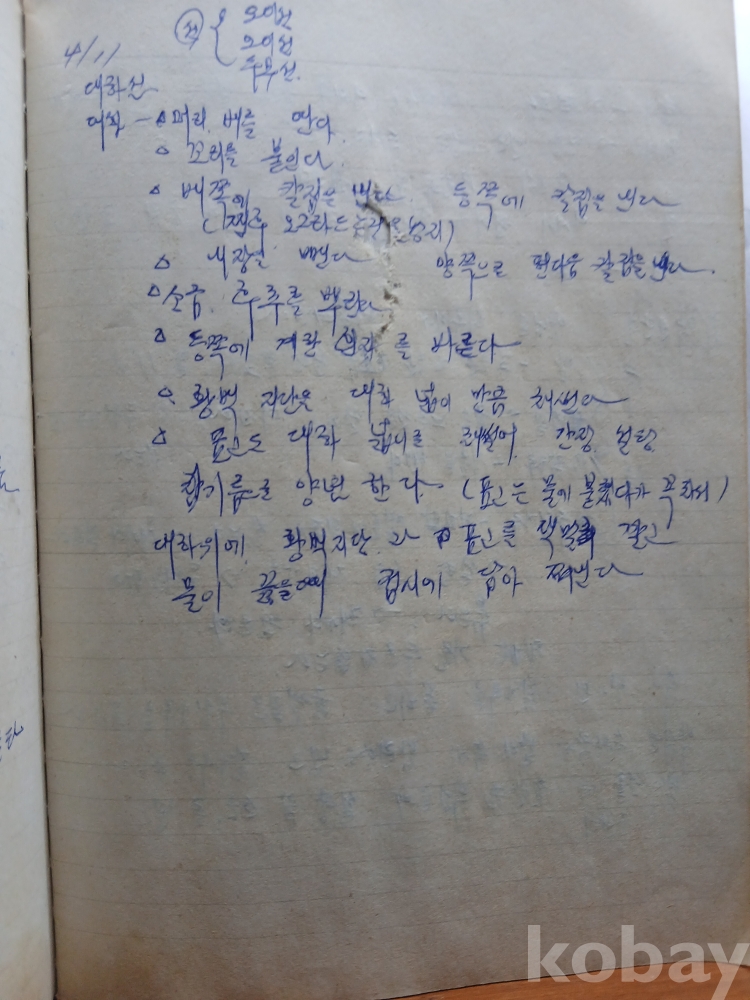 4/11
전 { 오이선
오이선
두부선
대하선
대하 - △머리 버를 딴다.
△ 꼬리를 붙인다.
△ 배쪽에 칼집을 낸다. 등쪽에 칼집을 낸다
(찜후 오그라드는
△ 내장을 뺀다 양쪽으로 편다음 칼집을 낸다.
△소금. 후추를 뿌린다
△ 등쪽에 계란 흰자를 바른다
△ 황백 지단은 대하 넓이 만큼 채썬다
△ 표고도 대하 넓이로 채썰어 간장 설탕
참기름으로 양념 한다. (표고는 물에 불렸다가 꼭짜서)
대하위에 황백지단과 표고를 얹고
물이 끓을때 접시에 담아 쪄낸다
kobay